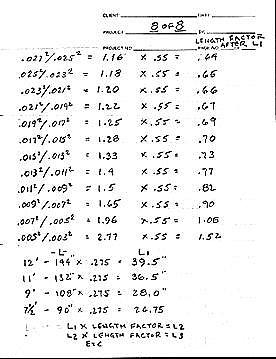 CLIENT DATE
PROJECT 8 OF 8 BY
PROJECT NO PAGE NO
LENGTH FACTOR
AFTER L1
.027²/.025² = 1.16 x .55 = .64
.025²/.023² = 1.18 x .55 = .65
.023²/.021² = 1.20 x .55 = .66
.021²/.019² = 1.22 x .55 = .67
.019²/.017² = 1.25 x .55 = .69
.017²/.015² = 1.28 x .55 = .70
.015²/.013² = 1.33 x .55 = .73
.013²/.011² = 1.4 x .55 = .77
.011²/.009² = 1.5 x .55 = .82
.009²/.007² = 1.65 x .55 = .90
.007²/.005² = 1.96 x .55 = 1.08
.005²/.003² = 2.77 x .55 = 1.52
L L1
12' - 144" x .275 = 39.5"
11' - 132" x .275 = 36.5"
9' - 108" x .275 = 28.0"
7½' - 90" x .275 = 24.75
L1 x LENGTH FACTOR = L2
L2 x LENGTH FACTOR = L3
ETC